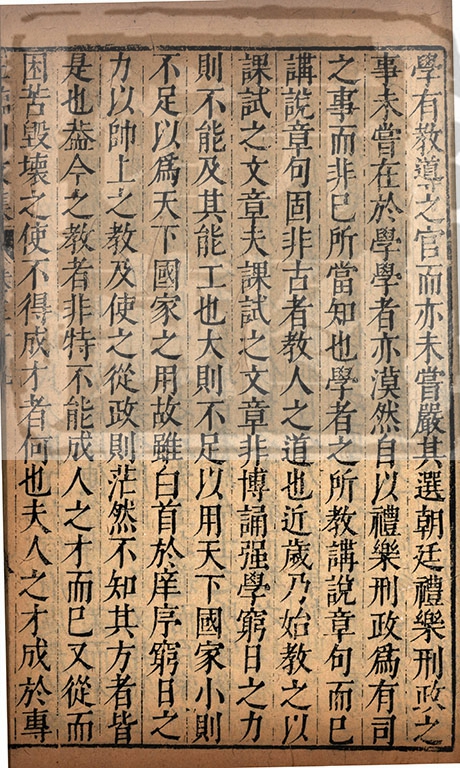 學有教導之官而亦未嘗嚴其選朝廷禮樂刑政之
事未嘗在於學學者亦漠然自以禮樂刑政爲有司
之事而非已所當知也學者之所教講說章句而已
講說章句固非古者教人之道也近歲乃始教之以
課試之文章夫課試之文章非博誦强學窮日之力
則不能及其能工也大則不足以用天下國家小則
不足以爲天下國家之用故雖白首於庠序窮日之
力以帥上之教及使之從政則茫然不知其方者皆
是也葢今之教者非特不能成人之才而已又從而
困苦毀壞之使不得成才者何也夫人之才成於專